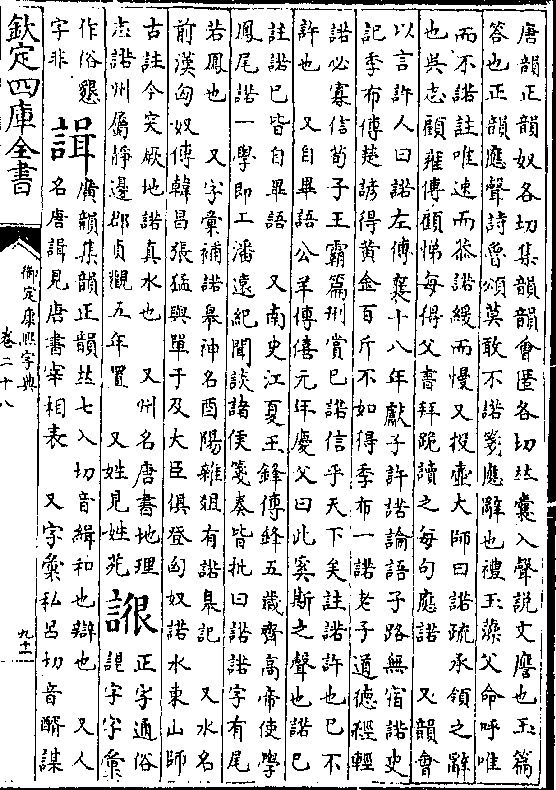 唐韻正韻奴各切集韻韻會匿各切𠀤囊入聲說文譍也玉篇
答也正韻應聲詩魯頌莫敢不諾箋應辭也禮玉藻父命呼唯
而不諾註唯速而恭諾緩而慢又投壺大師曰諾疏承領之辭
也吳志顧雍傳顧悌每得父書拜跪讀之每句應諾　又韻會
以言許人曰諾左傳襄十八年獻子許諾論語子路無宿諾史
記季布傳楚諺得黃金百斤不如得季布一諾老子道德經輕
諾必寡信荀子王霸篇刑賞已諾信乎天下矣註諾許也已不
許也　又自畢語公羊傳僖元年慶父曰此奚斯之聲也諾已
註諾已皆自畢語　又南史江夏王鋒傳鋒五歲齊高帝使學
鳳尾諾一學即工潘遠紀聞談諸侯箋奏皆批曰諾諾字有尾
若鳳也　又字彙補諾皋神名酉陽雜俎有諾皋記　又水名
前漢匈奴傳韓昌張猛與單于及大臣俱登匈奴諾水東山師
古註今突厥地諾真水也　又州名唐書地理
志諾州屬靜邊郡貞觀五年置　又姓見姓苑　詪　正字通俗
詪字字彙
作俗懇
字非　諿　廣韻集韻正韻𠀤七入切音緝和也辯也　又人
名唐諿見唐書宰相表　又字彙私呂切音醑謀
欽定四庫全書
御定康熙字典
卷二十八
九十一